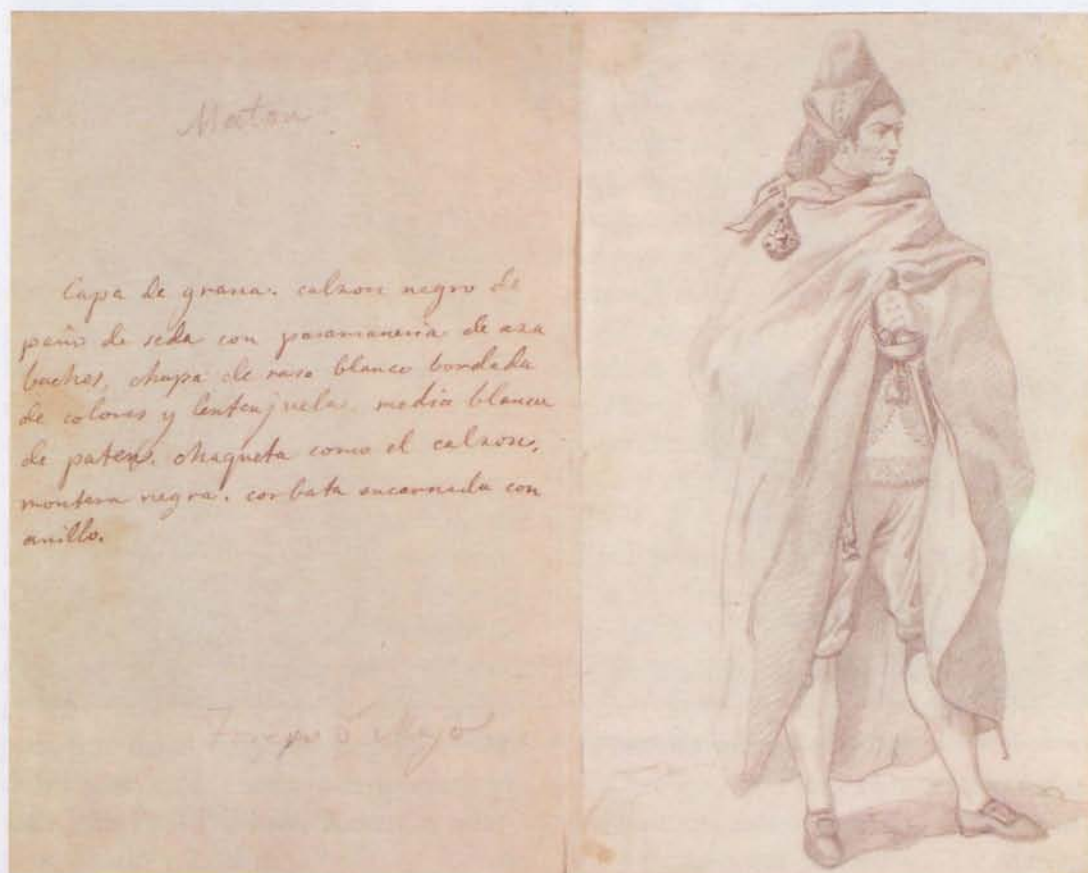 Maton
Capa de grana. calzon negro de
paño de seda con pasamaneria de aza
baches, chupa de raso blanco bordada
de colores y lentejuela, media blanca
de paten. chaqueta como el calzon.
montera negra. corbata encarnada con
anillo.
ó Majo